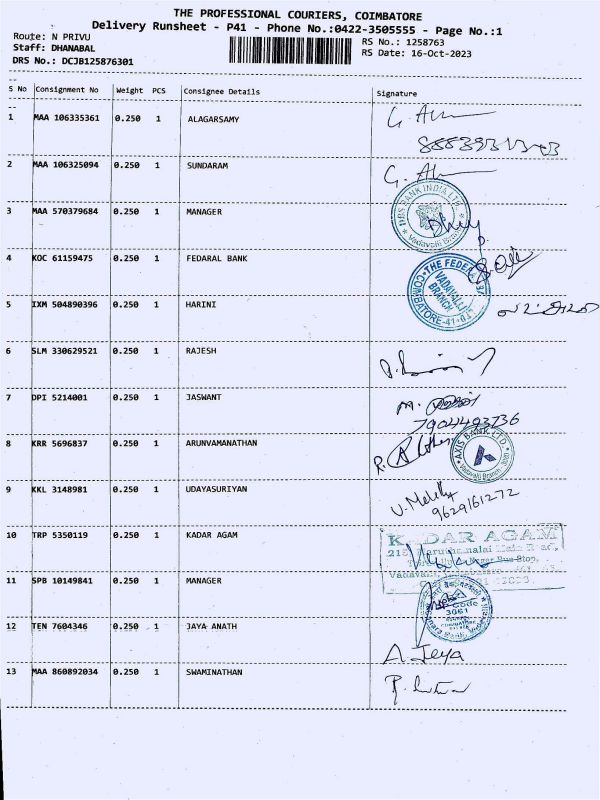 THE PROFESSIONAL COURIERS, COIMBATORE
Delivery Runsheet - P41 - Phone No.:0422-3505555 - Page No.:1
Route: N PRIVU
RS No.: 1258763
Staff: DHANABAL
RS Date: 16-Oct-2023
DRS No.: DCJB125876301
S No Consignment No Weight PCS Consignee Details Signature
1 MAA 106335361 0.250 1 ALAGARSAMY
2 MAA 106325094 0.250 1 SUNDARAM
3 MAA 570379684 0.250 1 MANAGER
DBS BANK INDIA LTD.
Vadavalli Branch
4 KOC 61159475 0.250 1 FEDARAL BANK
THE FEDERAL
VADAVALLI
BRANCH
COIMBATORE-41
5 IXM 504890396 0.250 1 HARINI
6 SLM 330629521 0.250 1 RAJESH
7 DPI 5214001 0.250 1 JASWANT
7904493736
8 KRR 5696837 0.250 1 ARUNVAMANATHAN
AXIS BANK LTD
Vadavalli Branch
9 KKL 3148981 0.250 1 UDAYASURIYAN
9629161272
10 TRP 5350119 0.250 1 KADAR AGAM
KADAR AGAM
Bus Stop,
11 SPB 10149841 0.250 1 MANAGER
Code
3061
12 TEN 7604346 0.250 1 JAYA ANATH
A. Jeya
13 MAA 860892034 0.250 1 SWAMINATHAN